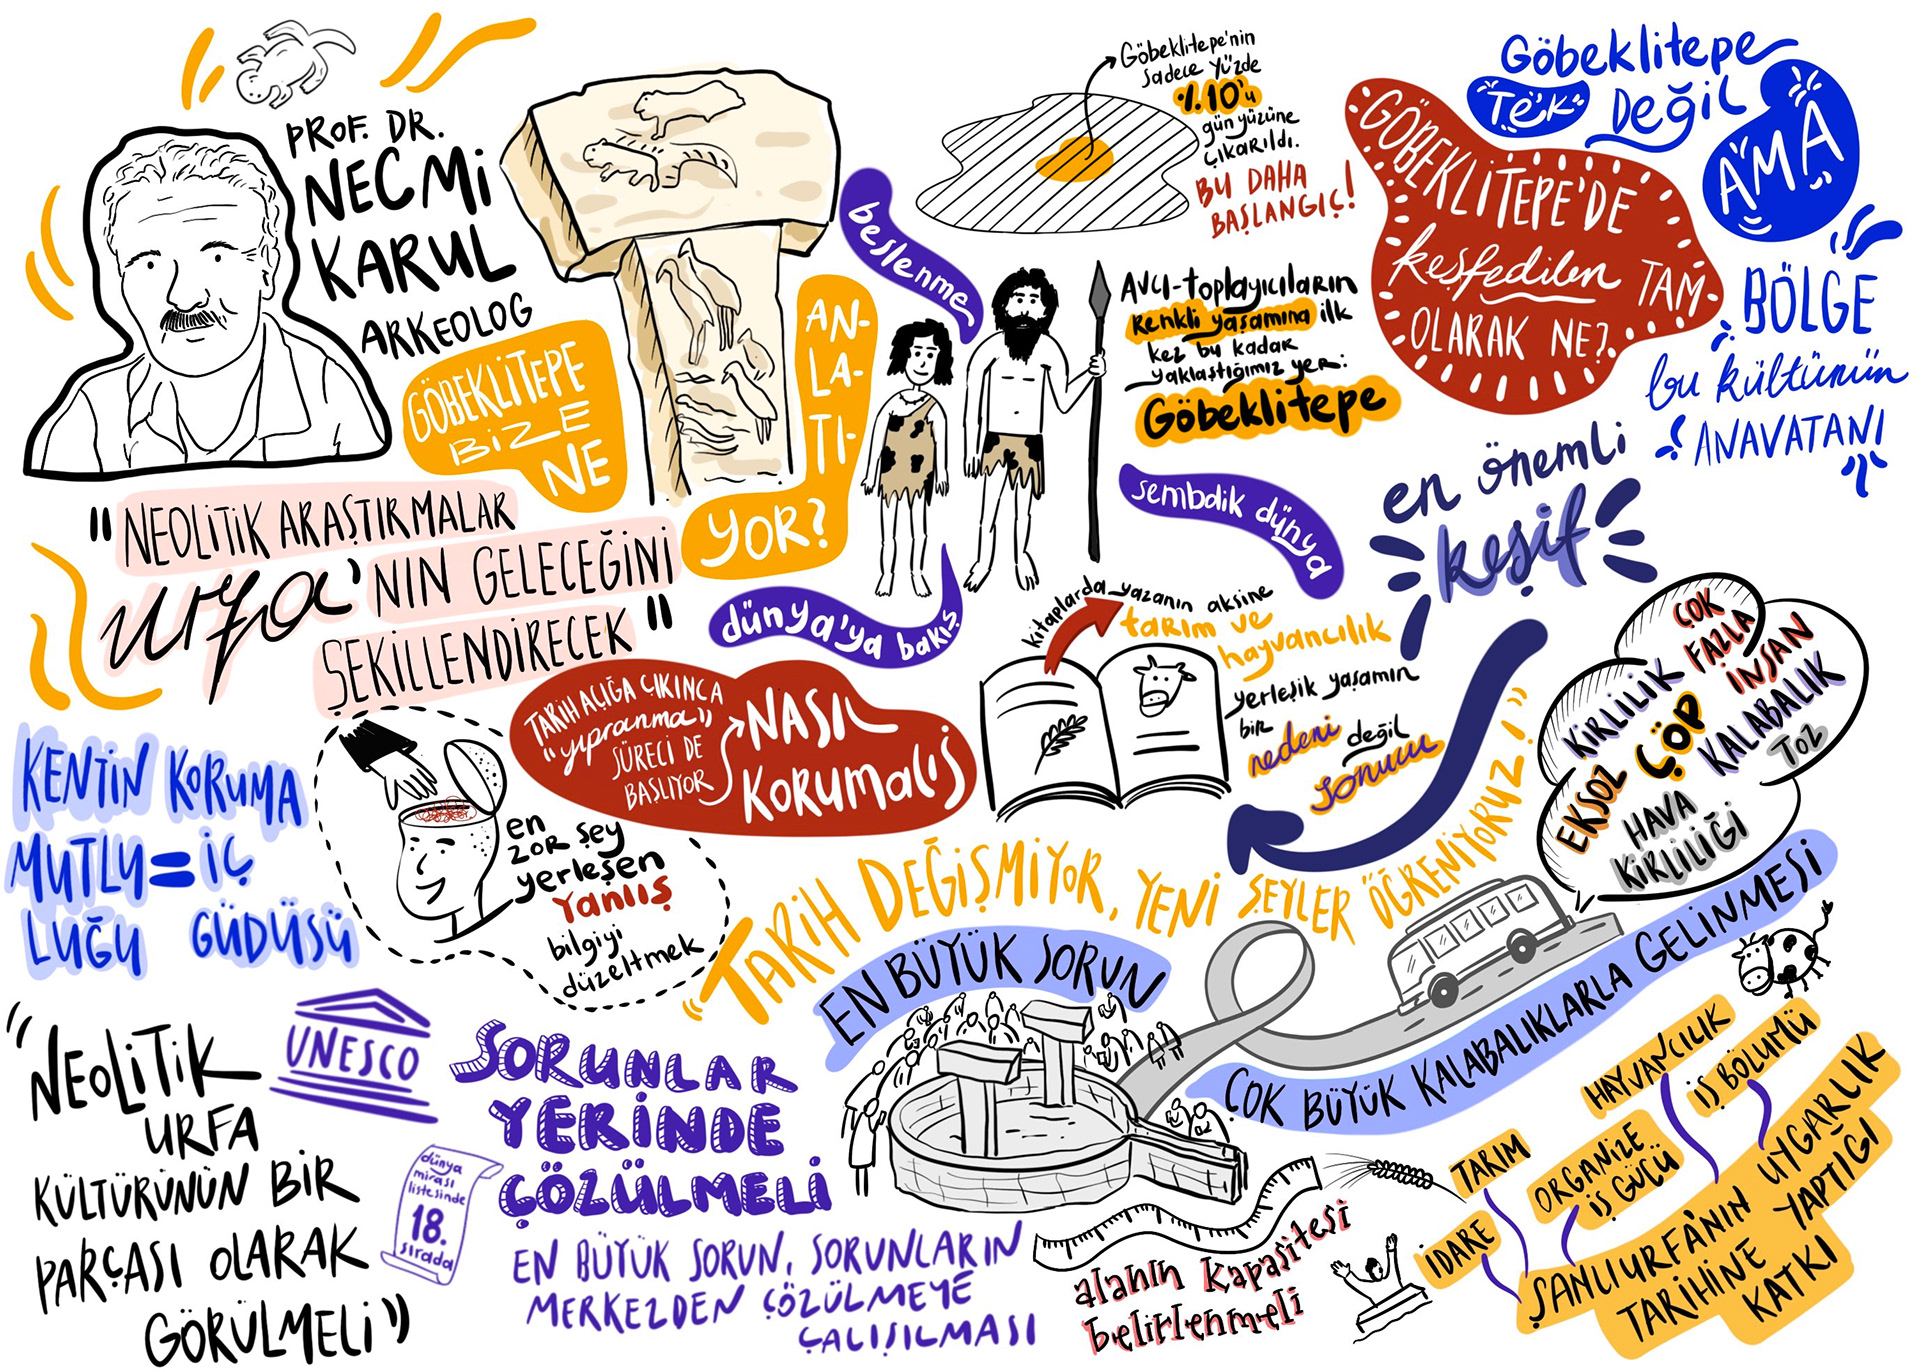 PROF. DR.
NECMİ
KARUL
ARKEOLOG
GÖBEKLİTEPE
BİZE
NE
AN-
LA-
TI-
YOR?
beslenme
sembolik dünya
dünya'ya bakış
Göbeklitepe'nin
sadece yüzde
%10'u
gün yüzüne
çıkarıldı.
BU DAHA
BAŞLANGIÇ!
AVCI-toplayıcıların
Renkli yaşamına ilk
kez bu kadar
yaklaştığımız yer:
Göbeklitepe
GÖBEKLİTEPE'DE
keşfedilen TAM
OLARAK NE?
Göbeklitepe
TEK DEĞİL
AMA
BÖLGE
bu kültürün
ANAVATANI
"NEOLİTİK ARAŞTIRMALAR
urfa'NIN GELECEĞİNİ
ŞEKİLLENDİRECEK"
en önemli
keşif
kitaplarda yazanın aksine
tarım ve
hayvancılık
yerleşik yaşamın
bir
nedeni değil
sonucu
TARİH AÇIĞA ÇIKINCA
"yıpranma"
SÜRECİ DE
BAŞLIYOR
NASIL
KORUMALI?
KENTİN KORUMA
MUTLU = İÇ
LUĞU GÜDÜSÜ
en
zor şey
yerleşen
Yanlış
bilgiyi
düzeltmek
"TARİH DEĞİŞMİYOR, YENİ ŞEYLER ÖĞRENİYORUZ!"
ÇOK
FAZLA
İNSAN
KİRLİLİK
ÇÖP
KALABALIK
TOZ
EKSOZ
HAVA
KİRLİLİĞİ
EN BÜYÜK SORUN
ÇOK BÜYÜK KALABALIKLARLA GELİNMESİ
"NEOLİTİK
URFA
KÜLTÜRÜNÜN BİR
PARÇASI OLARAK
GÖRÜLMELİ"
UNESCO
dünya
mirası
listesinde
18.
sırada
SORUNLAR
YERİNDE
ÇÖZÜLMELİ
EN BÜYÜK SORUN, SORUNLARIN
MERKEZDEN ÇÖZÜLMEYE
ÇALIŞILMASI
alanın kapasitesi
belirlenmeli
HAYVANCILIK
İŞ BÖLÜMÜ
TARIM
ORGANİZE
İŞ GÜCÜ
İDARE
ŞANLIURFA'NIN UYGARLIK
TARİHİNE YAPTIĞI
KATKI